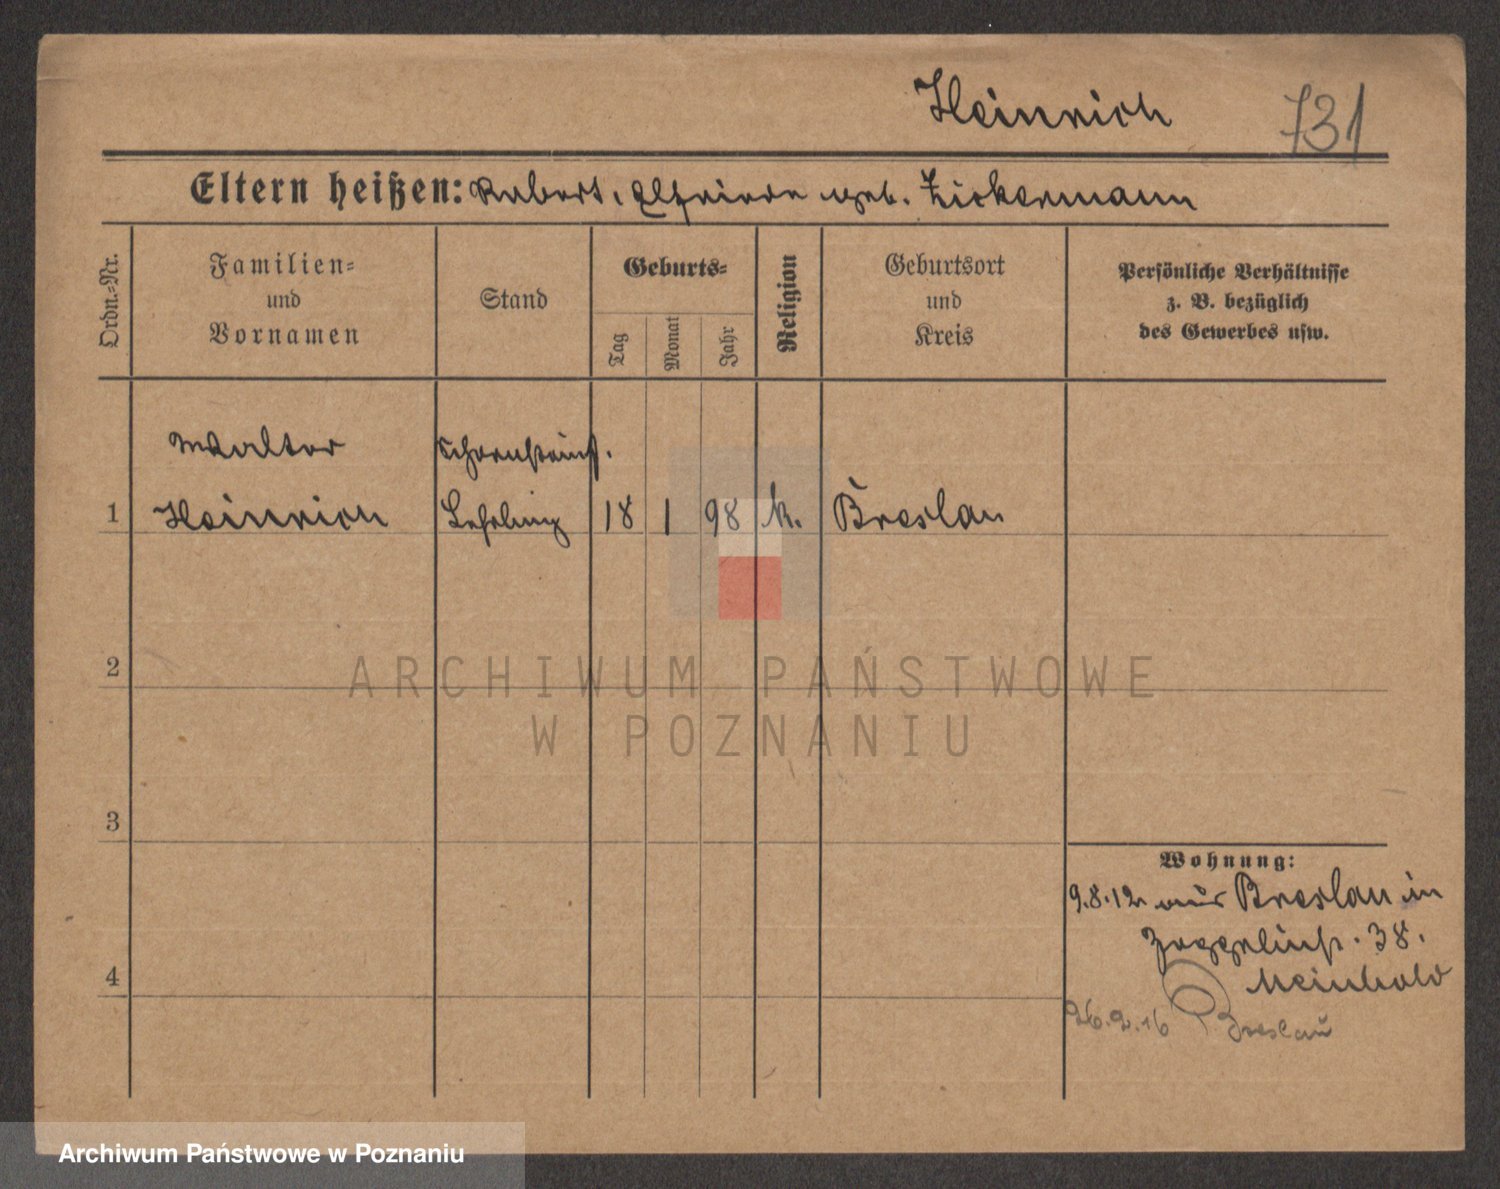 Heinrich 731
Eltern heißen: Robert, Elfriede geb. Zickermann
Ordn.-Nr.
Familien-
und
Vornamen
Stand
Geburts-
Tag
Monat
Jahr
Religion
Geburtsort
und
Kreis
Persönliche Verhältnisse
z. B. bezüglich
des Gewerbes usw.
Walter Schornsteinf.
1 Heinrich Lehrling 18 1 98 k. Breslau
2
ARCHIWUM PAŃSTWOWE
W POZNANIU
3
4
Wohnung:
9.8.12 aus Breslau in
38.
Meinhold
26.2.16 Breslau
Archiwum Państwowe w Poznaniu